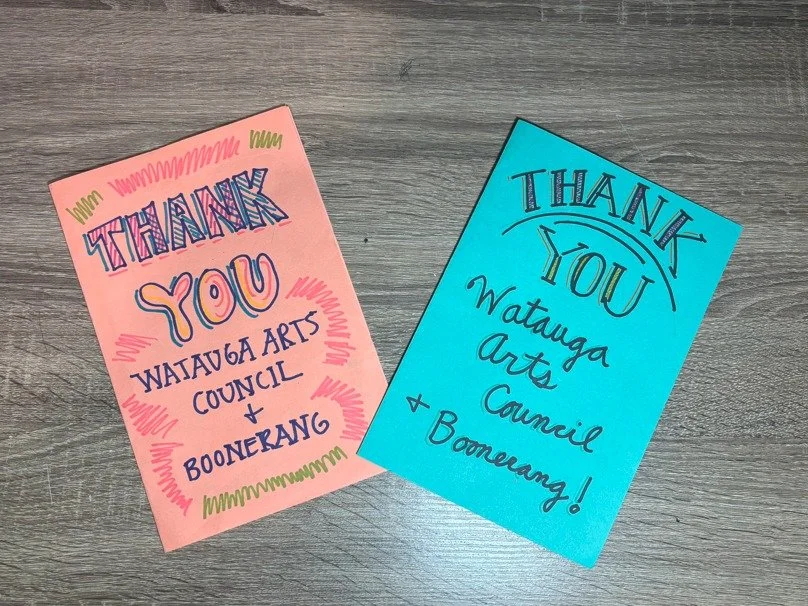 THANK
YOU
WATAUGA ARTS
COUNCIL
+
BOONERANG
THANK
YOU
Watauga
Arts
Council
+ Boonerang!